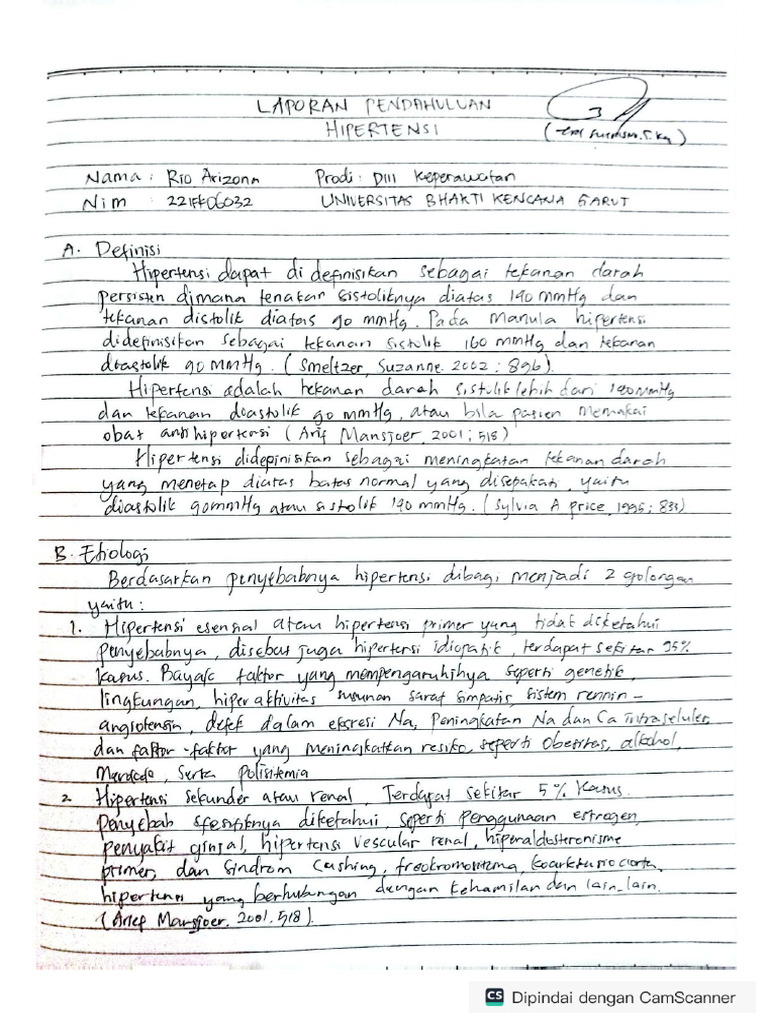 LAPORAN PENDAHULUAN
HIPERTENSI
Nama : Rio Arizona Prodi : DIII Keperawatan
Nim : 221FK06032 UNIVERSITAS BHAKTI KENCANA GARUT
A. Definisi
Hipertensi dapat di definisikan sebagai tekanan darah
persisten dimana tenakan sistoliknya diatas 140 mmHg dan
tekanan distolik diatas 90 mmHg. Pada manula hipertensi
didefinisikan sebagai tekanan sistolik 160 mmHg dan tekanan
diastolik 90 mmHg. (Smeltzer, Suzanne. 2002 : 896).
Hipertensi adalah tekanan darah sistolik lebih dari 140 mmHg
dan tekanan diastolik 90 mmHg, atau bila pasien memakai
obat antihipertensi (Arif Mansjoer, 2001 ; 518)
Hipertensi didepinisikan sebagai meningkatan tekanan darah
yang menetap diatas batas normal yang disepakati, yaitu
diastolik 90 mmHg atau sistolik 140 mmHg. (Sylvia A price, 1995 ; 833)
B. Etiologi
Berdasarkan penyebabnya hipertensi dibagi menjadi 2 golongan
yaitu :
1. Hipertensi esensial atau hipertensi primer yang tidak diketahui
penyebabnya, disebut juga hipertensi idiopatik, terdapat sekitar 95%
kasus. Bayak faktor yang mempengaruhihya seperti genetik,
lingkungan, hiperaktivitas susunan saraf simpatis, sistem rennin -
angiotensin, defek dalam eksresi Na, Peningkatan Na dan Ca Intraseluler
dan faktor-faktor yang meningkatkan resiko, seperti Obesitas, alkohol,
Merokok, Serta Polisitemia
2. Hipertensi sekunder atau renal. Terdapat sekitar 5% kasus.
Penyebab spesifiknya diketahui, seperti penggunaan estrogen,
penyakit ginjal, hipertensi vescular renal, hiperaldosteronisme
primer, dan Sindrom Cushing, feokromositoma, koarktasio aorta,
hipertensi yang berhubungan dengan kehamilan dan lain-lain.
(Arief Mansjoer. 2001. 518).
CS Dipindai dengan CamScanner